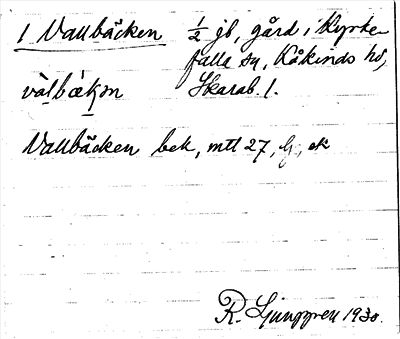 1 Vallbäcken ½ jb, gård i Kyrke-
falla sn, Kåkinds hd,
vàlbækən Skarab. l.
Vallbäcken bek, mtl 27, ek
R. Ljunggren 1930.